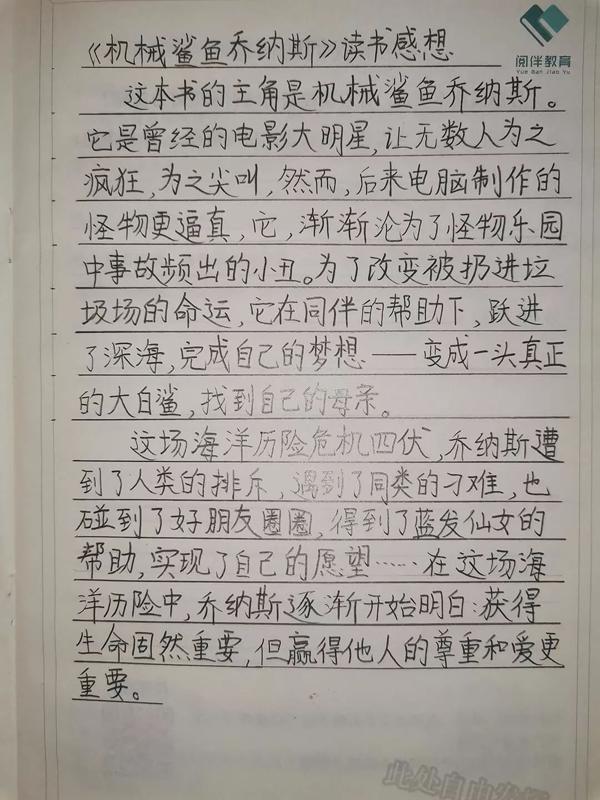 阅伴教育
Yue Ban Jiao Yu
《机械鲨鱼乔纳斯》读书感想
这本书的主角是机械鲨鱼乔纳斯。
它是曾经的电影大明星,让无数人为之
疯狂,为之尖叫,然而,后来电脑制作的
怪物更逼真,它,渐渐沦为了怪物乐园
中事故频出的小丑。为了改变被扔进垃
圾场的命运,它在同伴的帮助下,跃进
了深海,完成自己的梦想——变成一头真正
的大白鲨,找到自己的母亲。
这场海洋历险危机四伏,乔纳斯遭
到了人类的排斥,遇到了同类的刁难,也
碰到了好朋友圈圈,得到了蓝发仙女的
帮助,实现了自己的愿望……在这场海
洋历险中,乔纳斯逐渐开始明白:获得
生命固然重要,但赢得他人的尊重和爱更
重要。
此处自由发挥